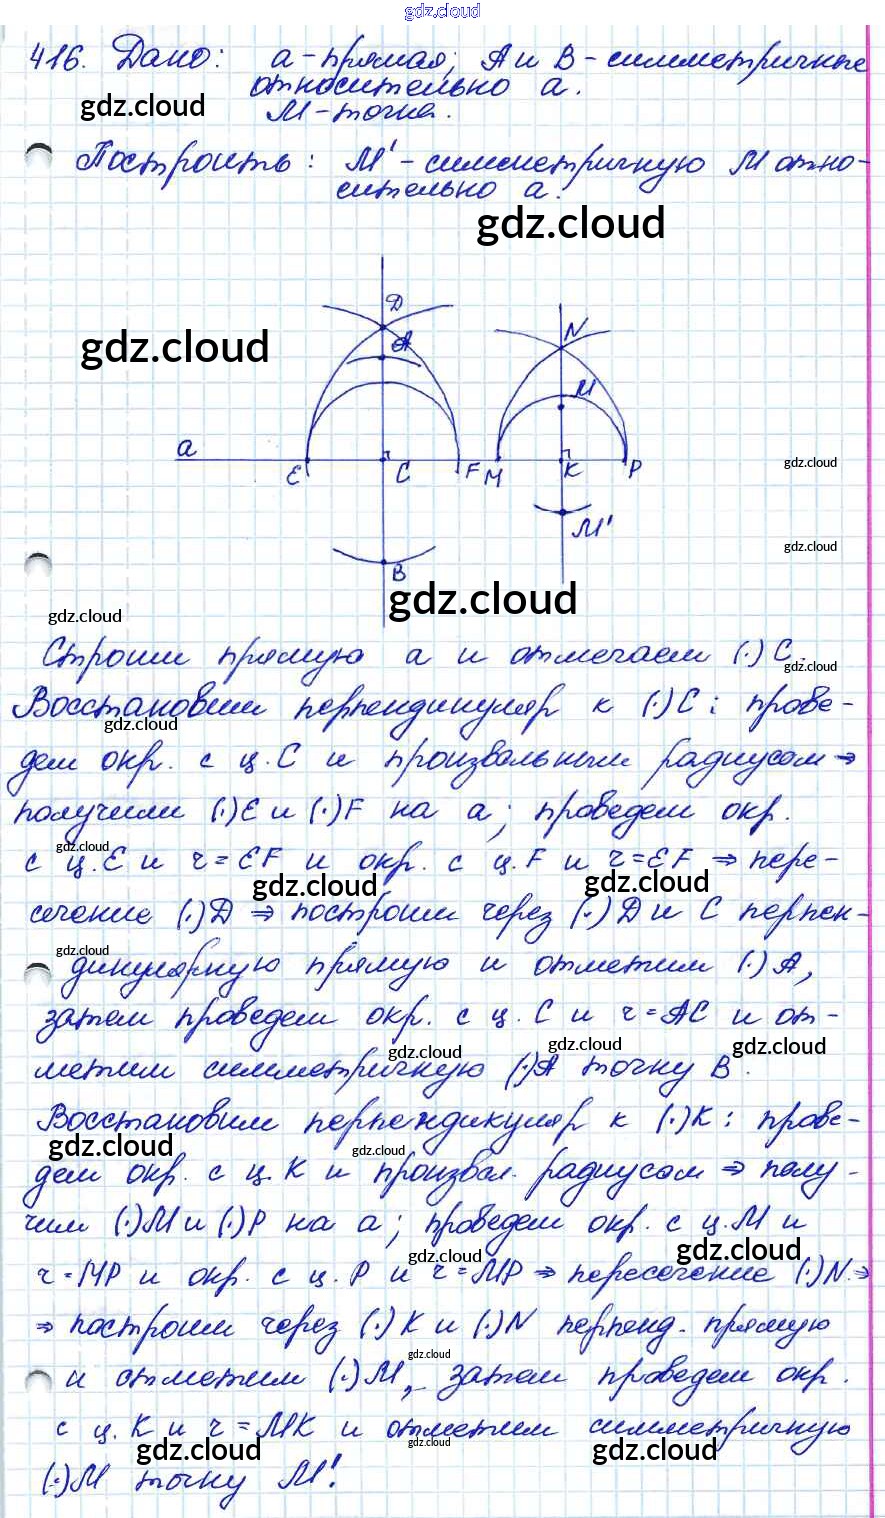 gdz.cloud
416. Дано: a - прямая; A и B - симметричные
относительно a.
gdz.cloud
M - точка.
Построить: M' - симметричную M отно-
сительно a.
gdz.cloud
D
N
gdz.cloud
A
M
a
E
C
F
M
K
P
gdz.cloud
M'
gdz.cloud
B
gdz.cloud
gdz.cloud
Строим прямую a и отмечаем (·) C.
gdz.cloud
Восстановим перпендикуляр к (·) C: прове-
gdz.cloud
дем окр. с ц. C и произвольным радиусом ⇒
получим (·) E и (·) F на a; проведем окр.
gdz.cloud
с ц. E и r = EF и окр. с ц. F и r = EF ⇒ пере-
gdz.cloud
gdz.cloud
сечение (·) D ⇒ построим через (·) D и C перпен-
gdz.cloud
дикулярную прямую и отметим (·) A,
затем проведем окр. с ц. C и r = AC и от-
gdz.cloud
gdz.cloud
gdz.cloud
метим симметричную (·) A точку B.
Восстановим перпендикуляр к (·) K: прове-
gdz.cloud
gdz.cloud
дем окр. с ц. K и произвол. радиусом ⇒ полу-
чим (·) M и (·) P на a; проведем окр. с ц. M и
gdz.cloud
gdz.cloud
r = MP и окр. с ц. P и r = MP ⇒ пересечение (·) N ⇒
⇒ построим через (·) K и (·) N перпенд. прямую
gdz.cloud
и отметим (·) M, затем проведем окр.
с ц. K и r = MK и отметим симметричную
gdz.cloud
gdz.cloud
gdz.cloud
(·) M точку M'.